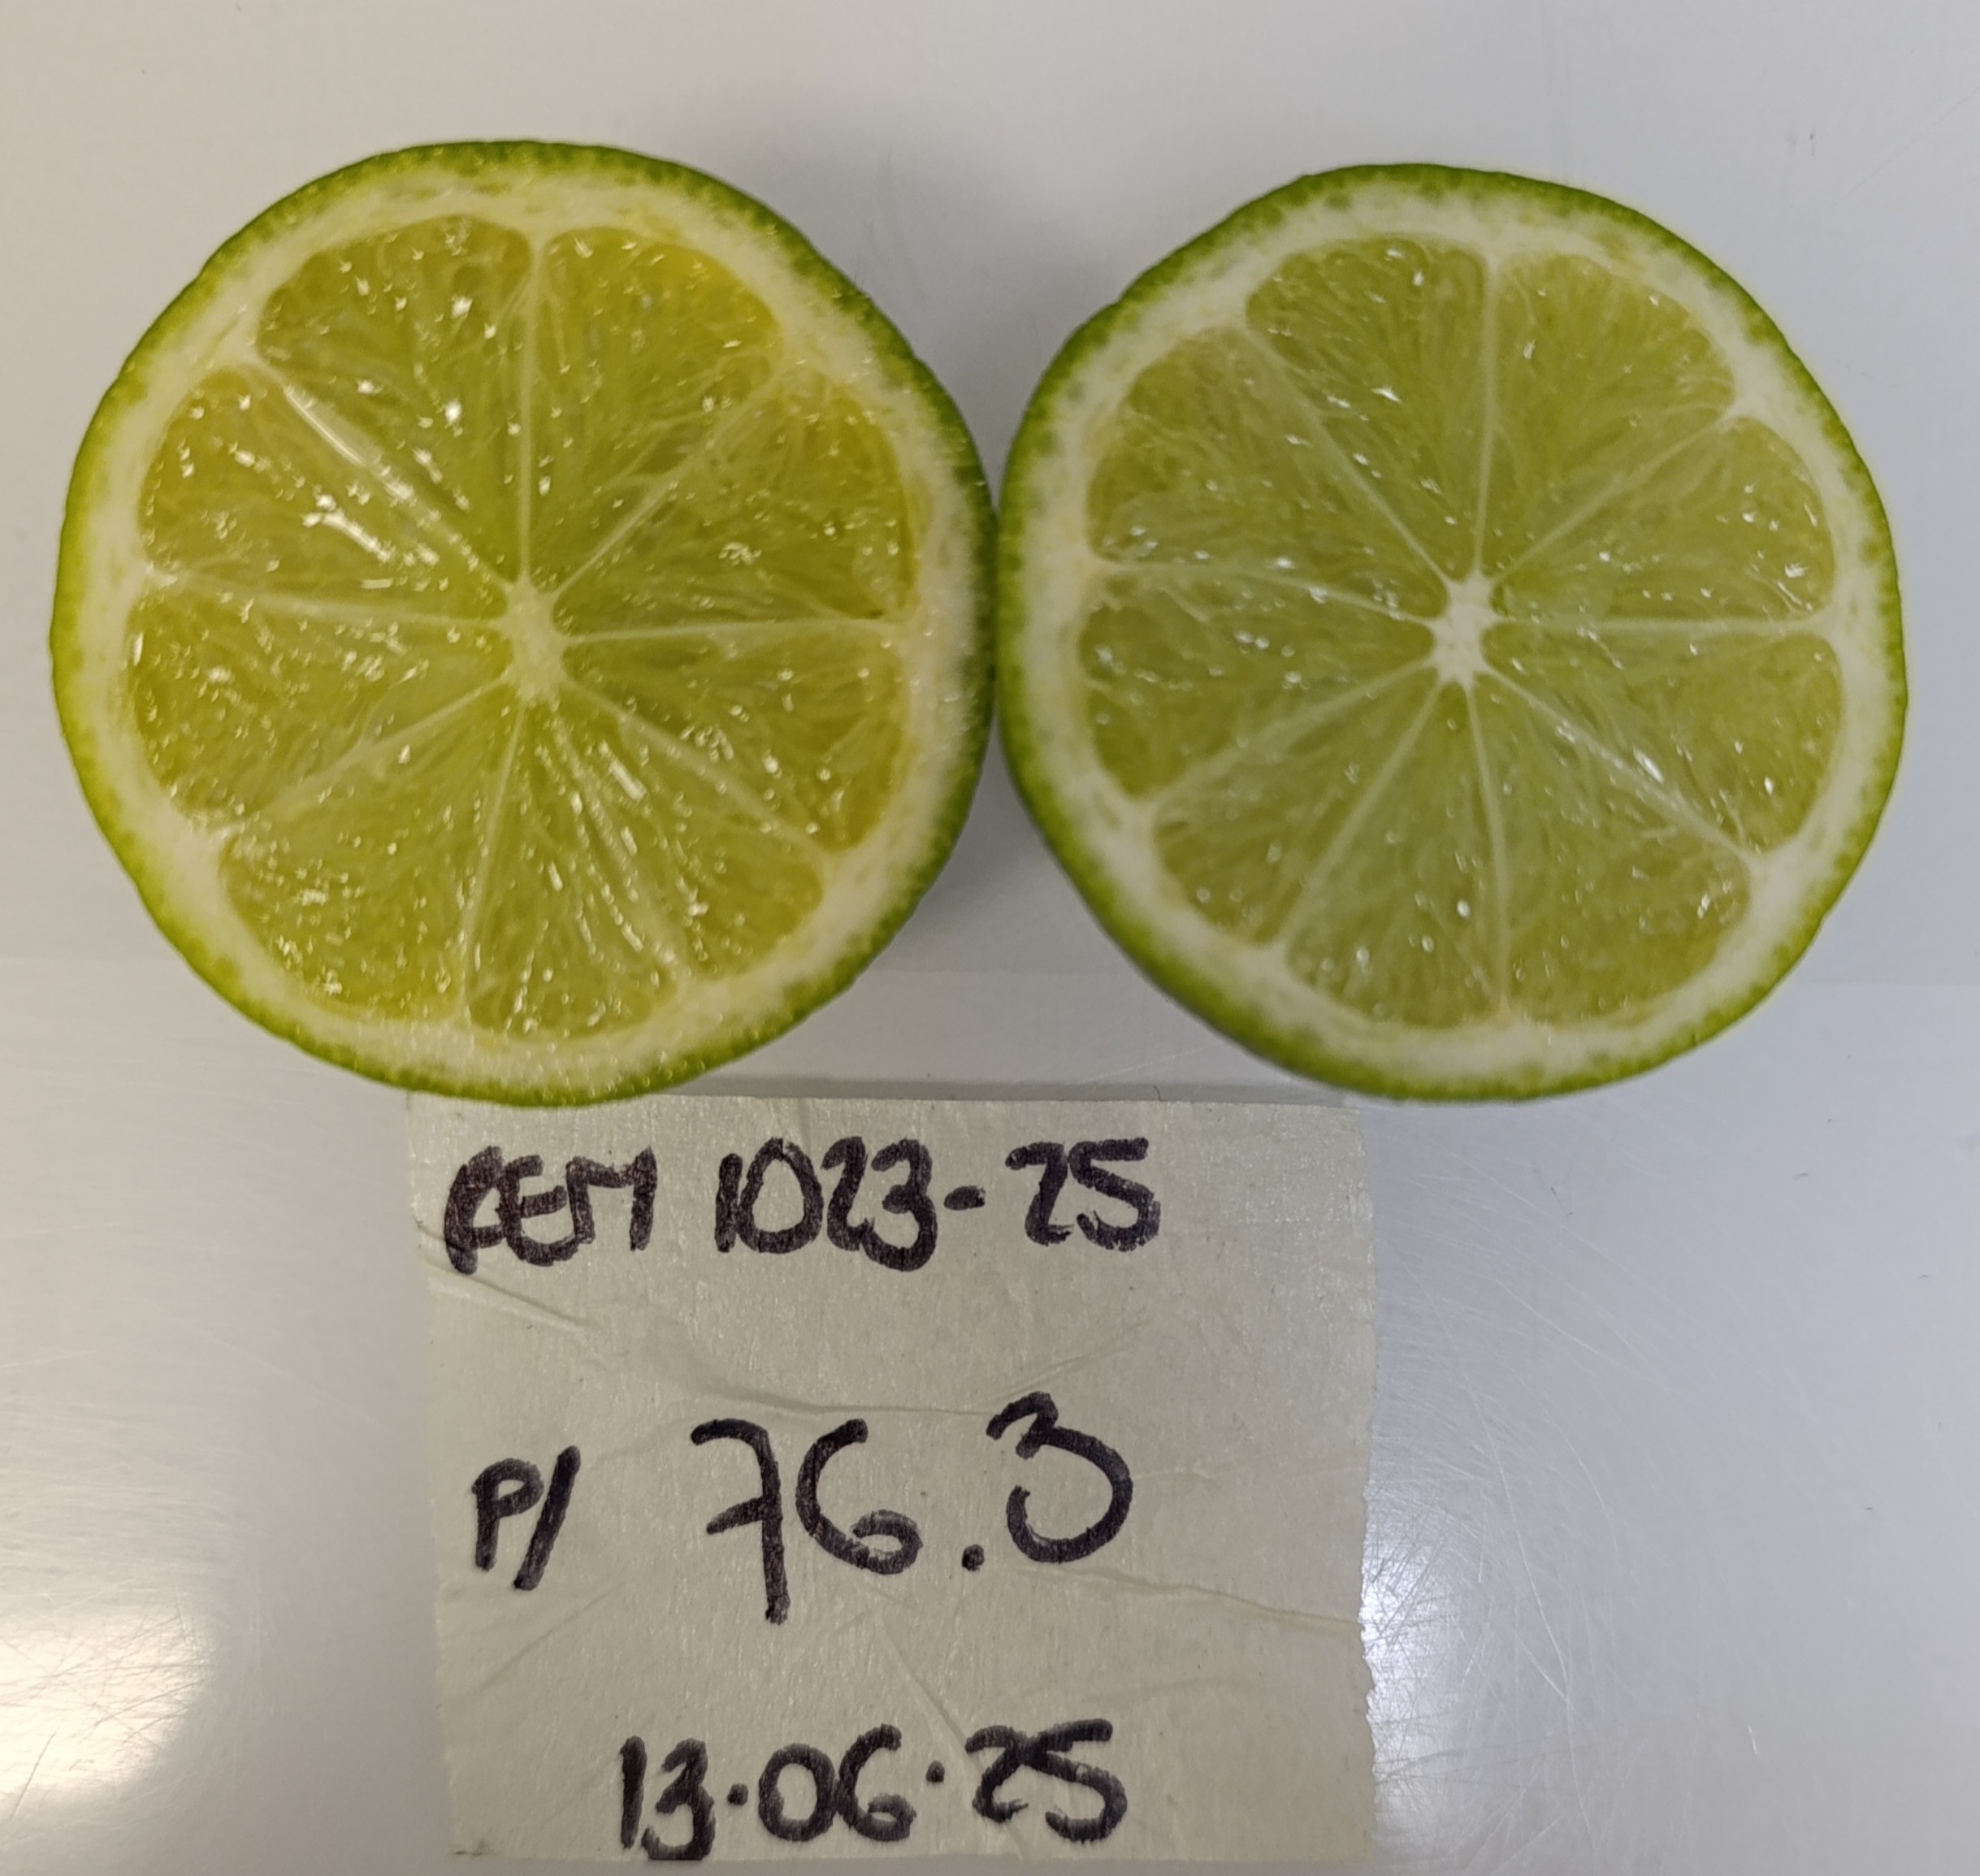 REM 1023-25
P/ 76.3
13.06.25